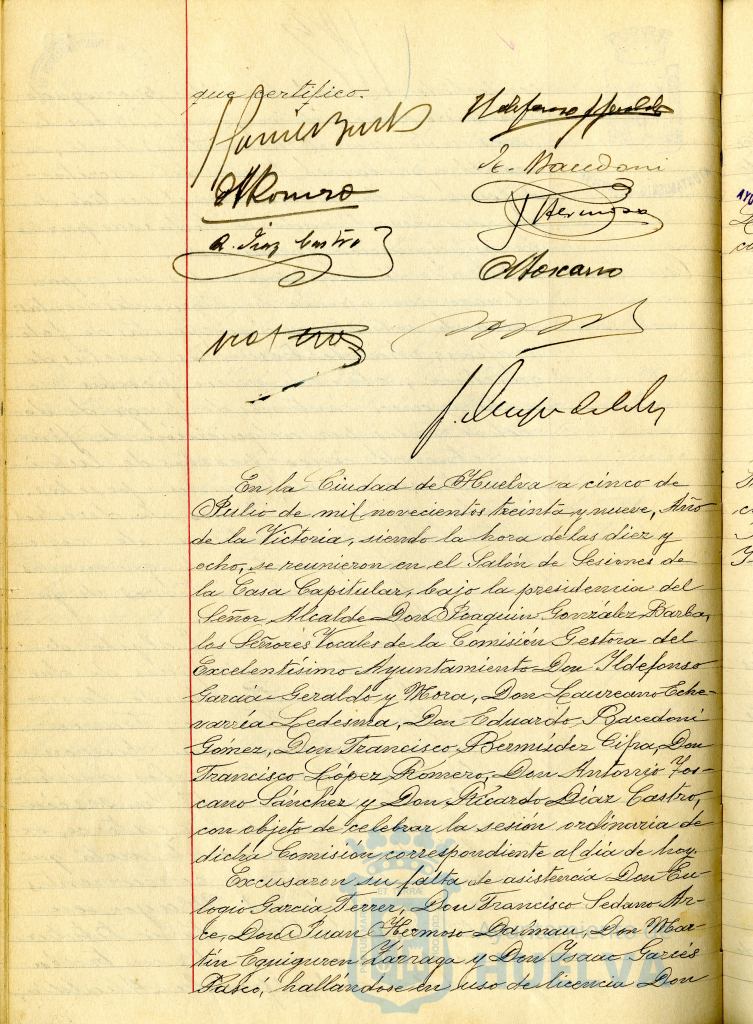 que certifico.
Ildefonso Geraldo
E. Racedoni
F. Romero
J. Hermoso
R. Diaz Castro
A. Toscano
En la Ciudad de Huelva a cinco de
Julio de mil novecientos treinta y nueve, Año
de la Victoria, siendo la hora de las diez y
ocho, se reunieron en el Salón de Sesiones de
la Casa Capitular, bajo la presidencia del
Señor Alcalde Don Joaquin González Barba,
los Señores Vocales de la Comisión Gestora del
Excelentísimo Ayuntamiento Don Ildefonso
García-Geraldo y Mora, Don Laureano Eche-
varría Ledesma, Don Eduardo Racedoni
Gómez, Don Francisco Bermúdez Cifra, Don
Francisco López Romero, Don Antonio Tos-
cano Sánchez y Don Ricardo Díaz Castro,
con objeto de celebrar la sesión ordinaria de
dicha Comisión correspondiente al día de hoy.
Excusaron su falta de asistencia Don Eu-
logio García Ferrer, Don Francisco Sedano Ar-
ce, Don Juan Hermoso Dalmau, Don Mar-
tín Eguiguren Zárraga y Don Isaac Garcés
Pascó, hallándose en uso de licencia Don
HUELVA